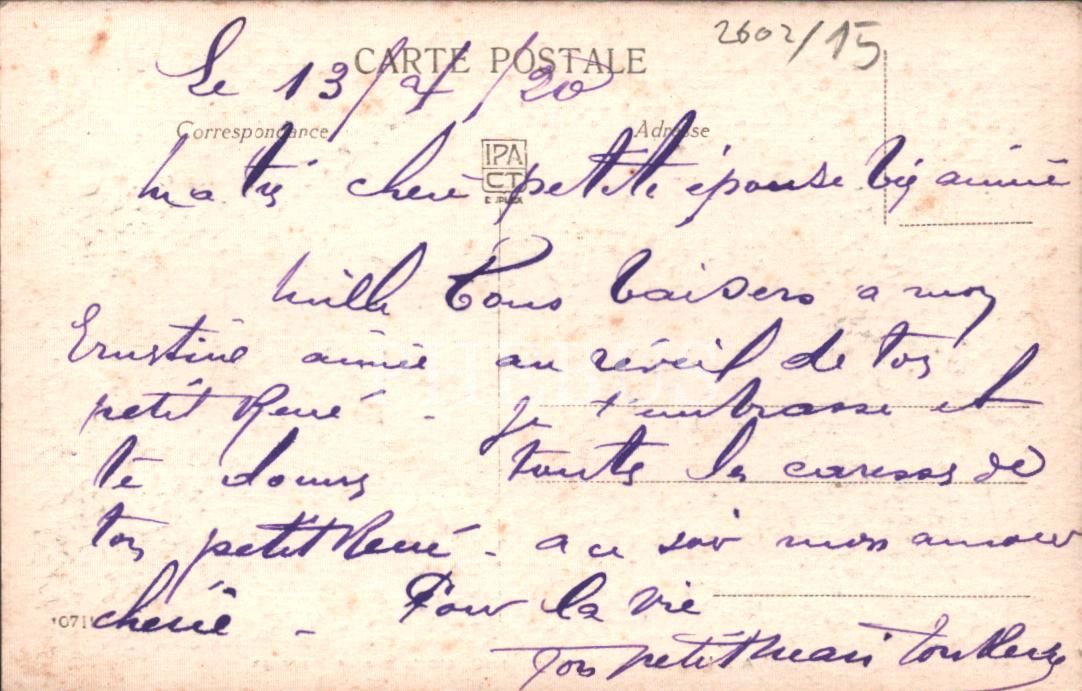 2602/15
CARTE POSTALE
Le 13/4/20
Correspondance
Adresse
IPA
CT
Ma très cheré petite épouse bien aimée
Mille bons baisers a mon
Ernestine aimée au réveil de ton
petit René - Je t'embrasse et
te donne toutes les caresses de
ton petit René - a ce soir mon amour
cherie - Pour la vie
Ton petit mari ton René